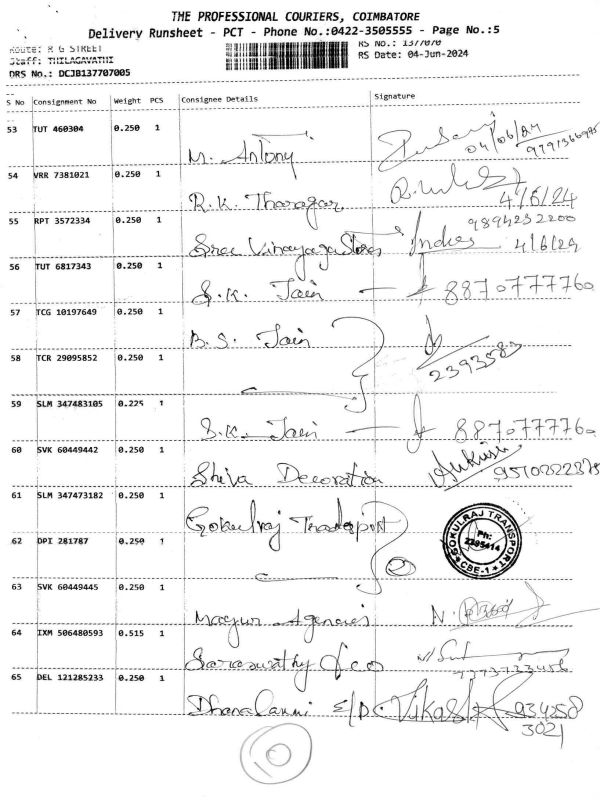 THE PROFESSIONAL COURIERS, COIMBATORE
Delivery Runsheet - PCT - Phone No.:0422-3505555 - Page No.:5
Route: R G STREET
RS No.: 1377070
Staff: THILAGAVATHI
RS Date: 04-Jun-2024
DRS No.: DCJB137707005
S No Consignment No Weight PCS Consignee Details Signature
53 TUT 460304 0.250 1
M. Antony 04/06/24
54 VRR 7381021 0.250 1
R.K. Tharagar 4/6/24
55 RPT 3572334 0.250 1 9894232200
Sree Vinayaga Stores 4/6/24
56 TUT 6817343 0.250 1
S.K. Jain 8870777760
57 TCG 10197649 0.250 1
B.S. Jain
58 TCR 29095852 0.250 1 2393583
59 SLM 347483105 0.225 1
S.K. Jain 8870777760
60 SVK 60449442 0.250 1
Shiva Decoration
61 SLM 347473182 0.250 1
Gokulraj Transport
GOKULRAJ TRANSPORT
Ph:
2395414
* CBE-1 *
62 DPI 281787 0.250 1
63 SVK 60449445 0.250 1
Mayur Agencies N.
64 IXM 506480593 0.515 1
Saraswathy & co
65 DEL 121285233 0.250 1
Vikas 934258
3021